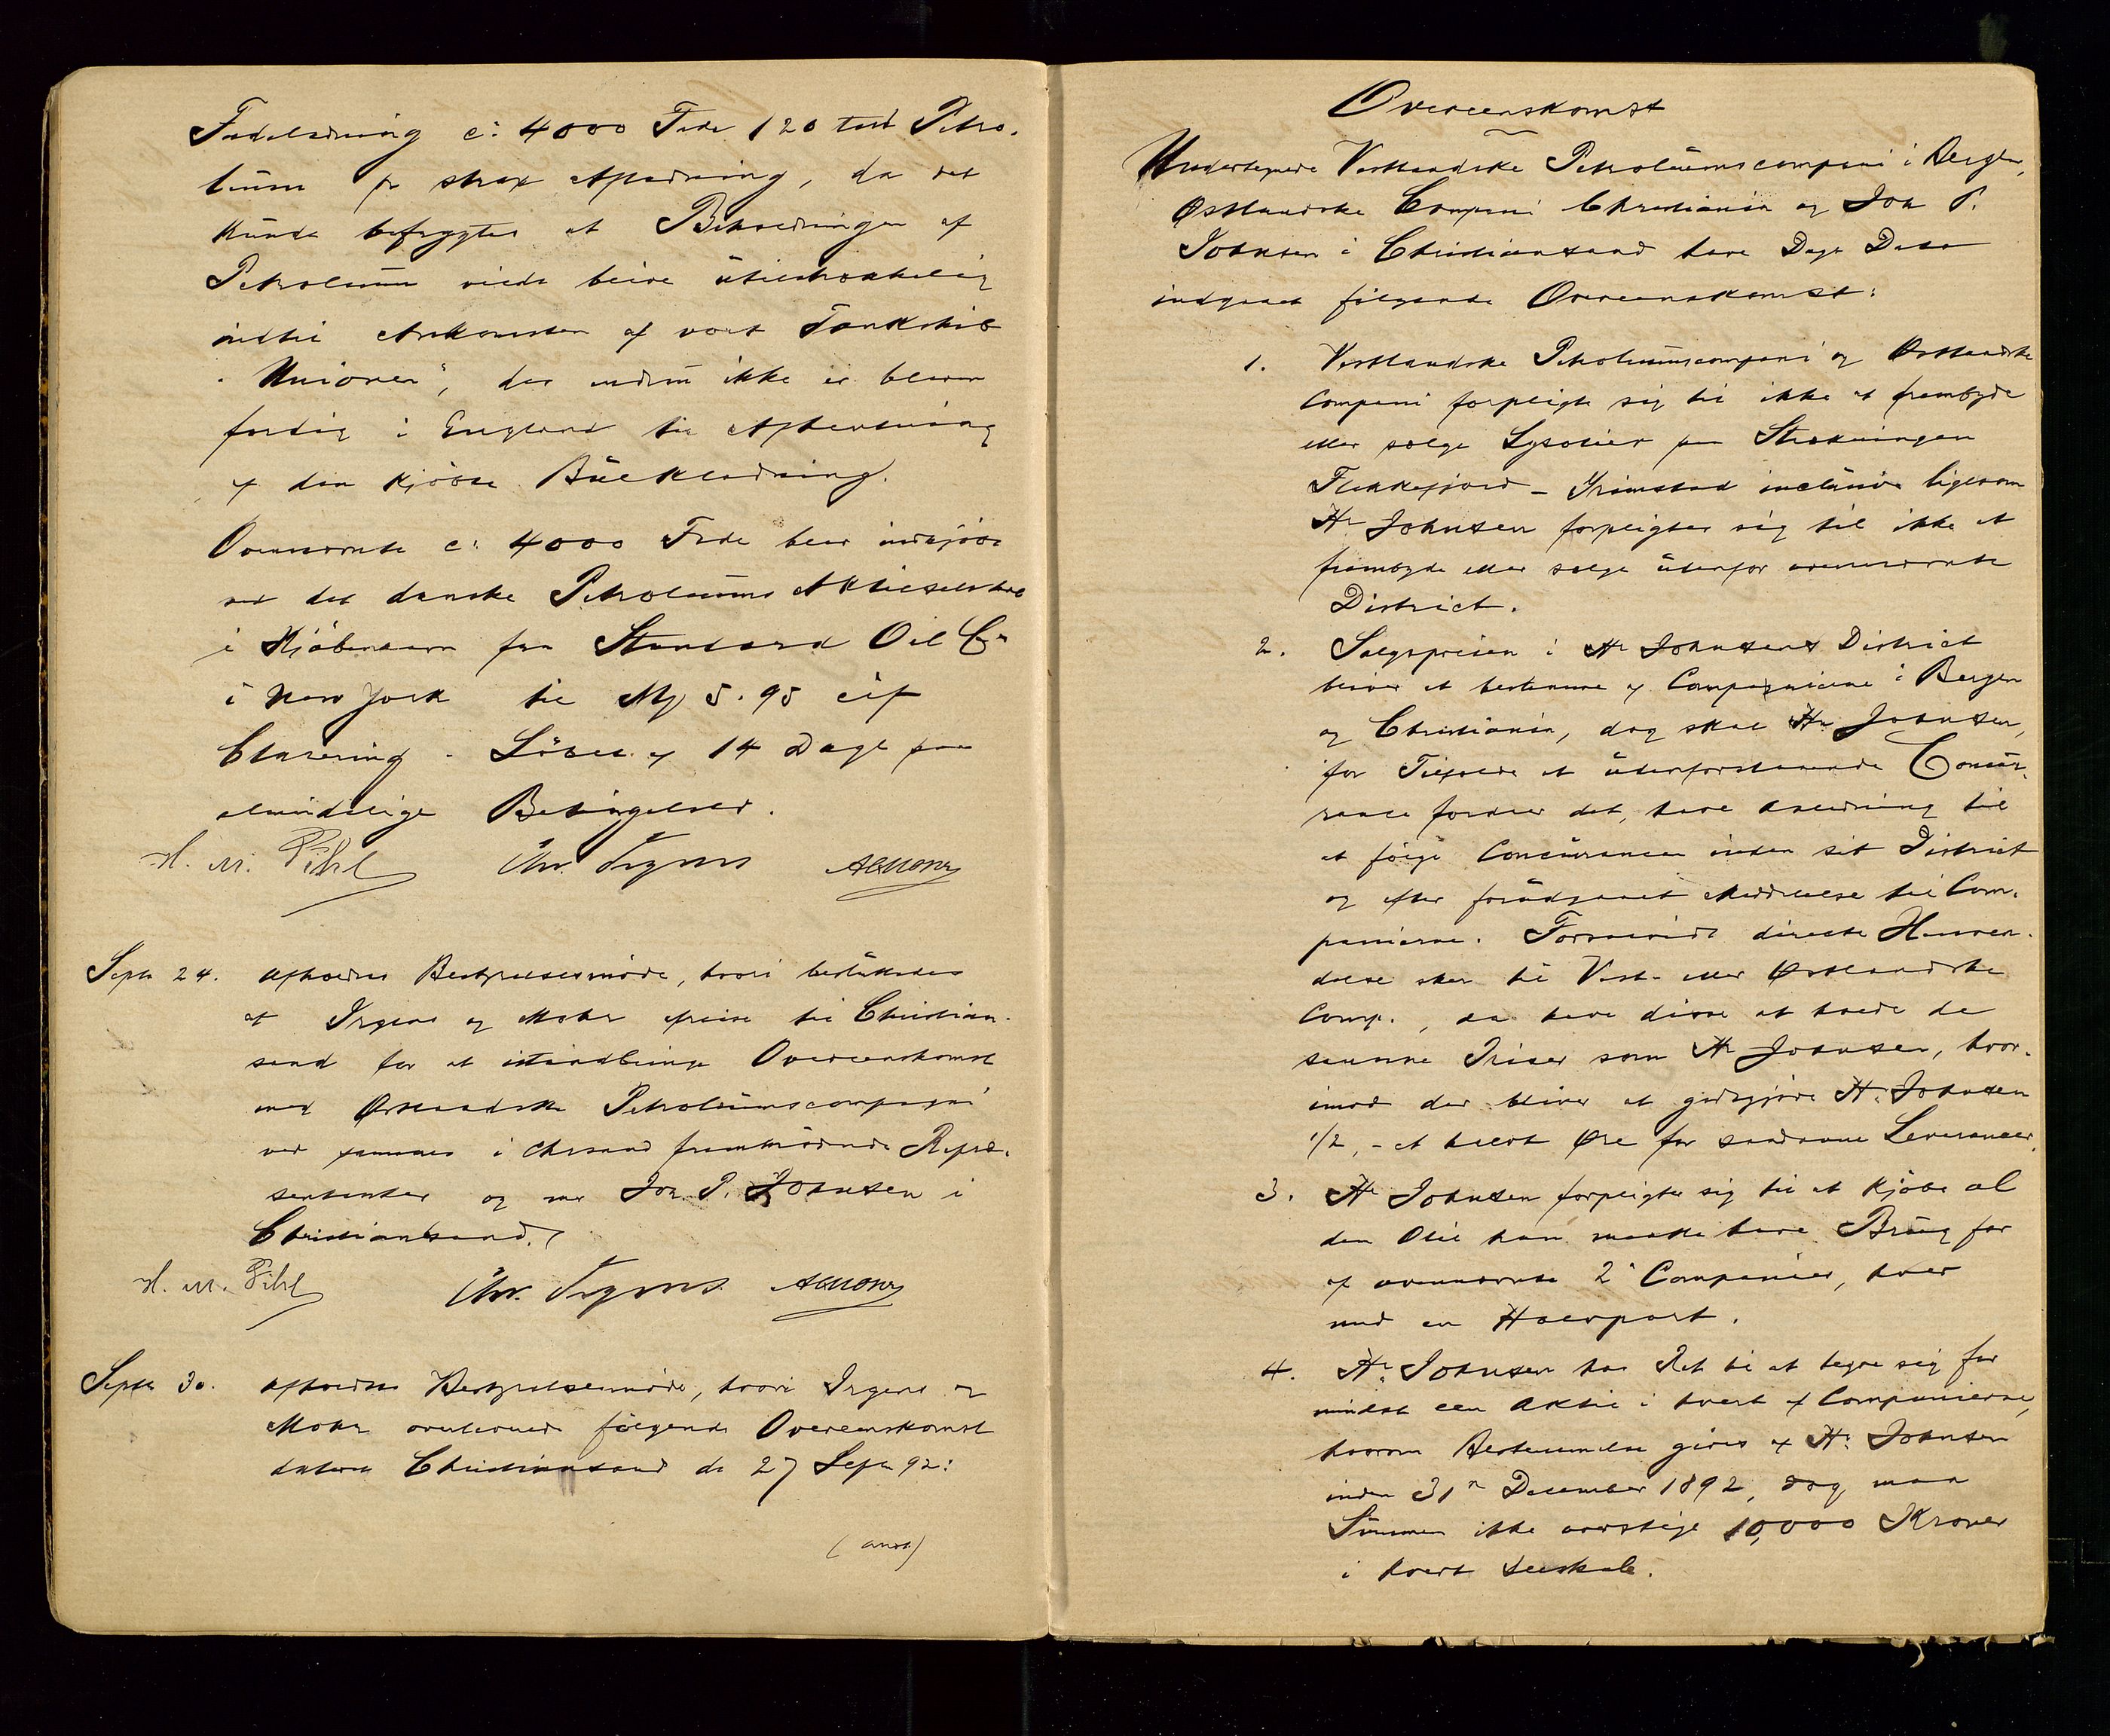 Fadeladning c: 4000 Fade 120 test Petro-
leum pr strax Afladning, da det
kunde befrygtes at Beholdningen af
Petroleum vilde blive utilstrækkelig
indtil Ankomsten af vort Tankskib
"Unionen", der endnu ikke er bleven
færdig i England til Afhentning
af den kjöbte Bulkladning.
Ovennævnte c: 4000 Fade blev indkjöbt
ved det danske Petroleums Aktieselskab
i Kjöbenhavn fra Standard Oil Co
i New York til M 5.95 cif
Clarering - Löbes af 14 Dage paa
almindelige Betingelser.
H. M. Pihl Chr. Irgens AMohr
Septr 24. Afholdtes Bestyrelsesmöde, hvori besluttedes
at Irgens og Mohr afreise til Christian-
sand for at istandbringe Overeenskomst
med Østlandske Petroleumscompagni
ved sammes i Chrsand fremmödende Repræ-
sentanter og med Joh. P. Johnsen i
Christianssand.
H. M. Pihl Chr. Irgens AMohr
Septr 30. Afholdtes Bestyrelsesmöde, hvori Irgens og
Mohr overleverede fölgende Overeenskomst
dateret Christianssand de 27 Septr 92:
(anst)
Overeenskomst
Undertegnede Vestlandske Petroleumscompani i Bergen,
Østlandske Compani Christiania og Joh P.
Johnsen i Christianssand have Dags Dato
indgaaet fölgende Overeenskomst:
1. Vestlandske Petroleumscompani og Østlandske
Compani forpligte sig til ikke at frembyde
eller sælge Lysolier paa Strækningen
Flekkefjord - Grimstad inclusive ligesom
Hr Johnsen forpligter sig til ikke at
frembyde eller sælge udenfor ovennævnte
District.
2. Salgsprisen i Hr Johnsens District
bliver at bestemme af Compagnierne i Bergen
og Christiania, dog skal Hr Johnsen,
for Tilfælde at udenforstaaende Concur-
rance fordrer det, have Anledning til
at fölge Concurrancen inden sit District
og efter forudgaaet Meddelelse til Com-
panierne. Forsaavidt directe Henven-
delse sker til Vest- eller Østlandske
Comp., da have disse at holde de
samme Priser som Hr Johnsen, hvor-
imod der bliver at godtgjöre Hr. Johnsen
1/2, - et halvt Øre for saadanne Leverancer.
3. Hr Johnsen forpligter sig til at kjöbe al
den Olie han maatte have Brug for
af ovennævnte 2 Companier, hver
med en Halvpart.
4. Hr. Johnsen har Ret til at tegne sig for
mindst een Aktie i hvert af Companierne,
hvorom Bestemmelse gives af Hr. Johnsen
inden 31te December 1892, dog maa
Summen ikke overstige 10,000 Kroner
i hvert Selskab.